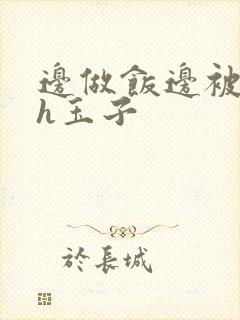 邊做飯邊被
h玉子
於長城